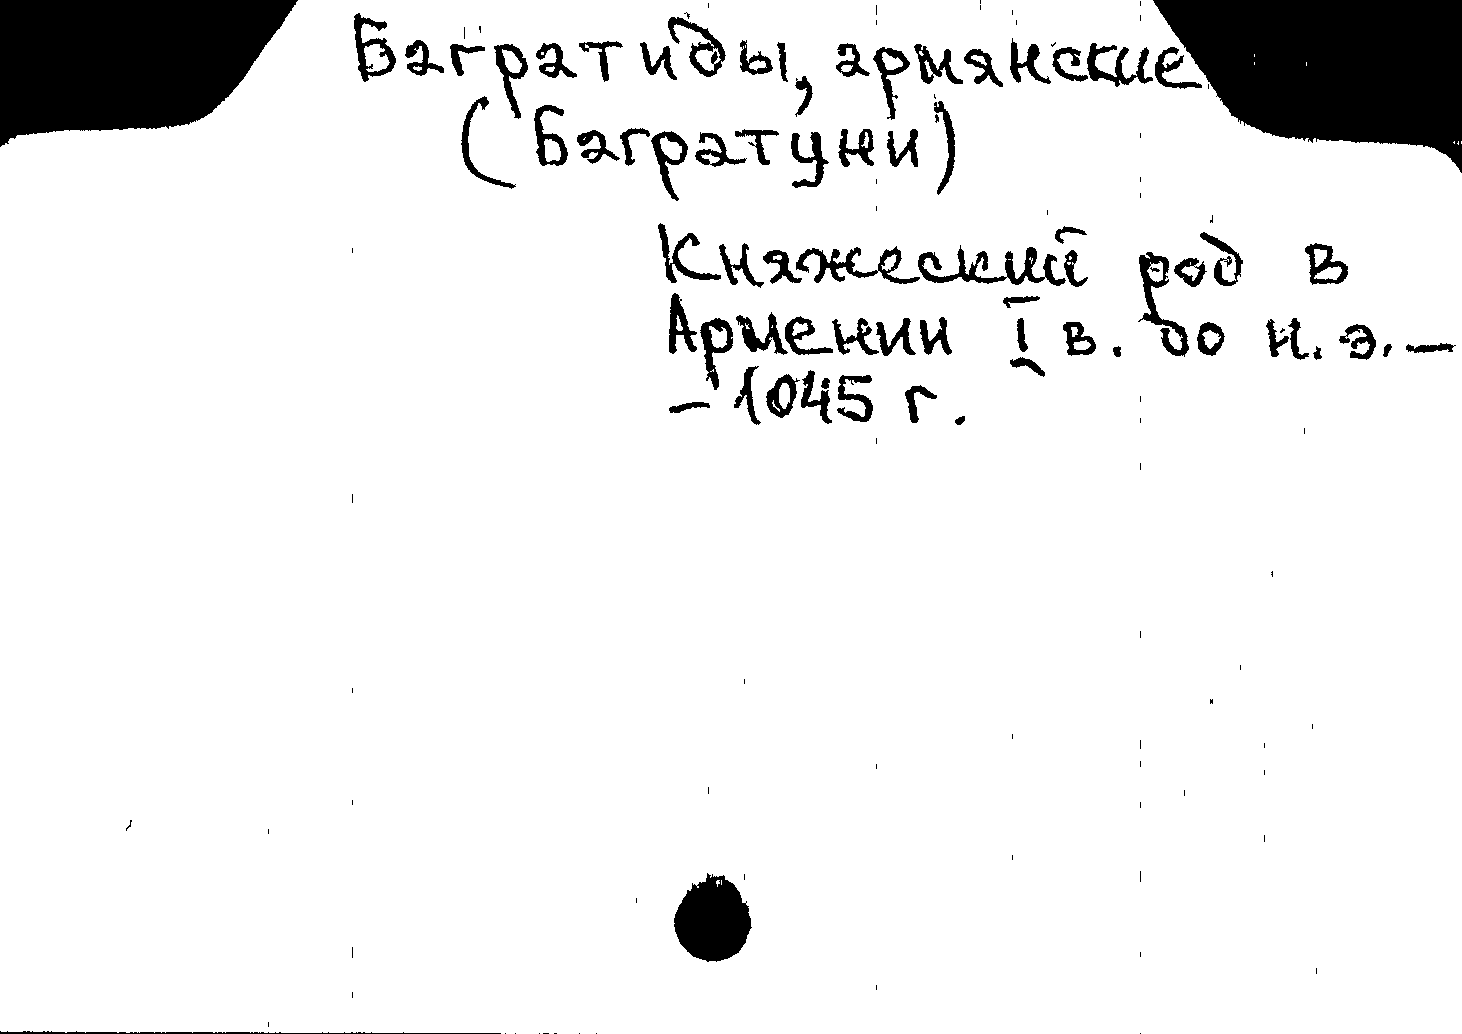 Багратиды, армянские
(Багратуни)
Княжеский род в
Армении I в. до н.э. –
– 1045 г.